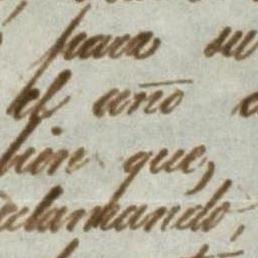 para su
el año
bien que,
clamando,